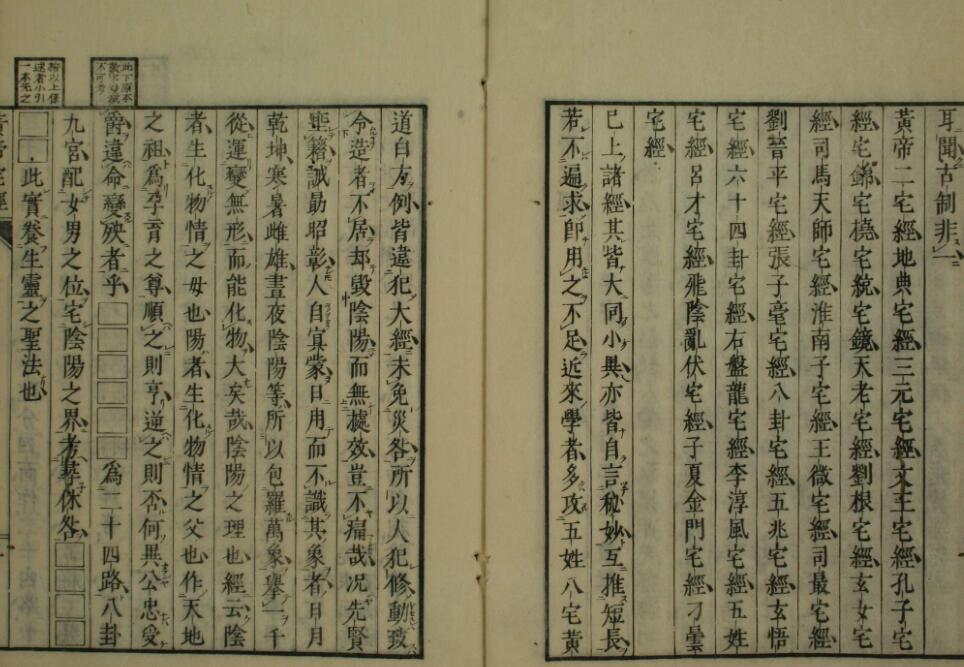 耳聞古制非一
黃帝二宅經地典宅經三元宅經文王宅經孔子宅
經宅錦宅橈宅統宅鏡天老宅經劉根宅經玄女宅
經司馬天師宅經淮南子宅經王微宅經司最宅經
劉晉平宅經張子毫宅經八卦宅經五兆宅經玄悟
宅經六十四卦宅經右盤龍宅經李淳風宅經五姓
宅經呂才宅經飛陰亂伏宅經子夏金門宅經刁曇
宅經
已上諸經其皆大同小異亦皆自言秘妙互推短長
若不遍求即用之不足近來學者多攻五姓八宅黃
道白方例皆違犯大經未免災咎所以人犯修動致
令造者不居却毀陰陽而無據效豈不痛哉况先賢
垂籍誠勗昭彰人自冥蒙日用而不識其象者日月
乾坤寒暑雌雄晝夜陰陽等所以包羅萬象擧一千
從運變無形而能化物大矣哉陰陽之理也經云陰
者生化物情之母也陽者生化物情之父也作天地
之祖爲孕育之尊順之則亨逆之則否何異公忠受
爵違命變殃者乎□□□□□□爲二十四路八卦
九宮配女男之位宅陰陽之界考尋休咎□□□□
□□此實養生靈之聖法也
黃帝宅經
此下原本
不可考
按以上係
述者小引
一本先之